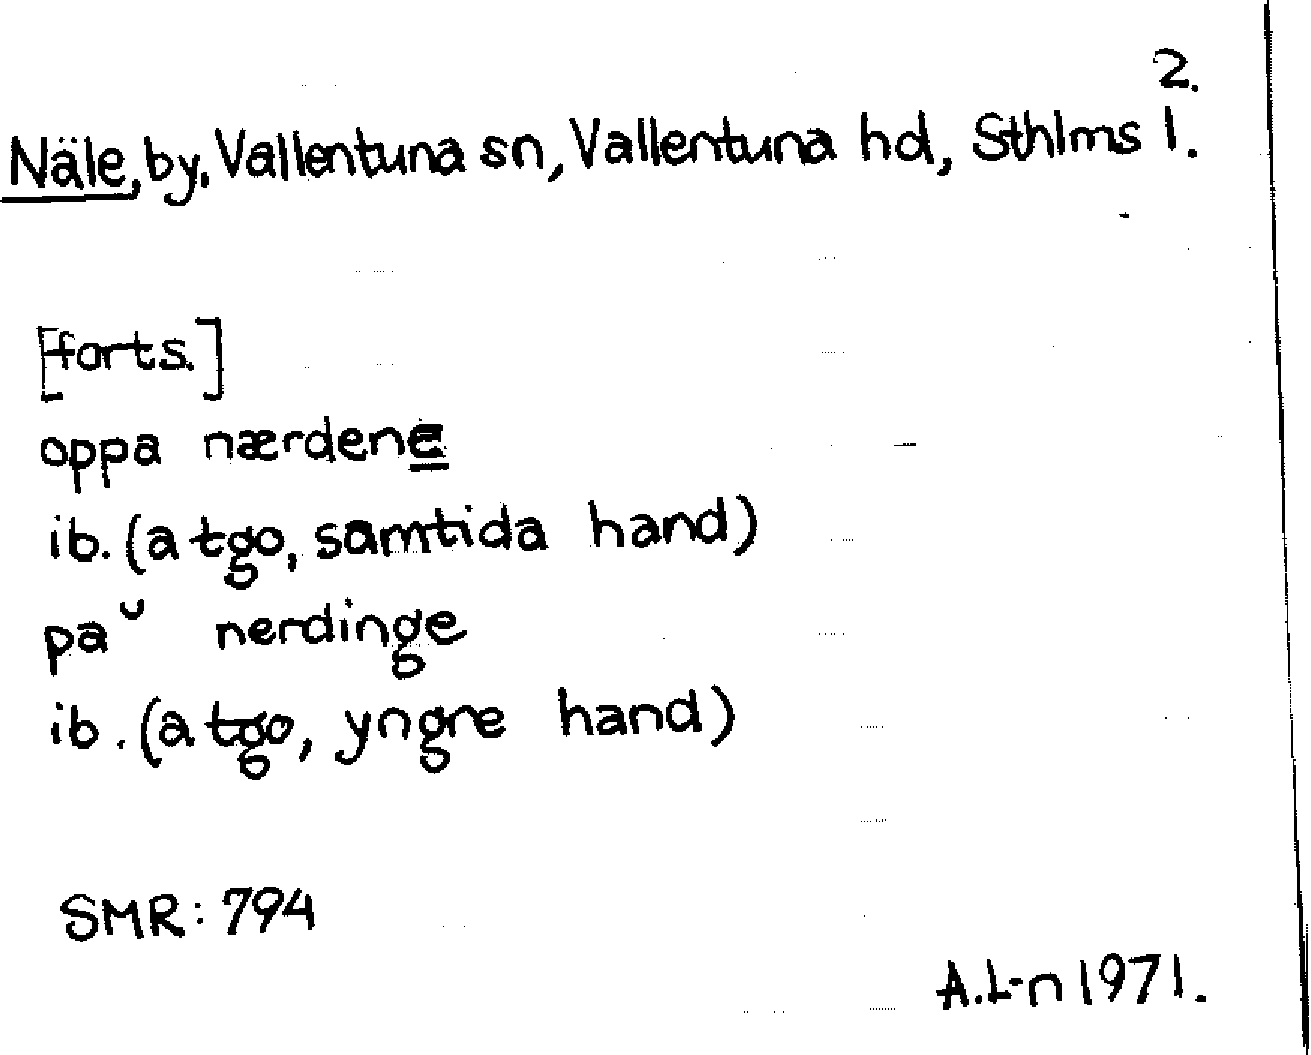 2.
Näle, by, Vallentuna sn, Vallentuna hd, Sthlms l.
[forts.]
oppa nærdene
ib. (a tgo, samtida hand)
pa ̆ nerdinge
ib. (a tgo, yngre hand)
SMR: 794
A.L-n 1971.